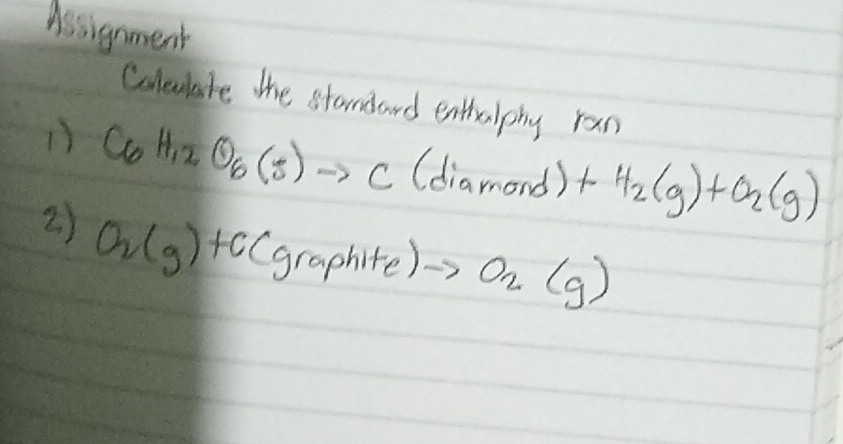 Assignment
Calculate the standard enthalphy rxn
1) C6 H12 O6 (s) -> C (diamond) + H2(g) + O2(g)
2) O2(g) + C(graphite) -> O2 (g)